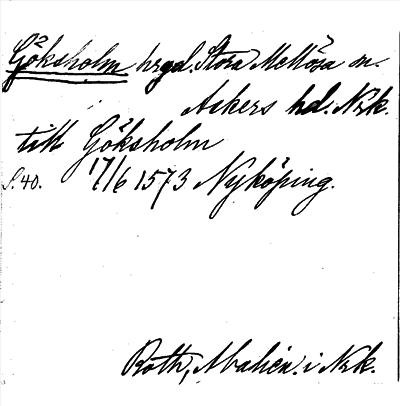 Göksholm hrgd. Stora Mellösa sn.
Askers hd. Nrk.
till Göksholm
S. 40. 17/6 1573 Nyköping.
Roth, Abalién. i Nrk.